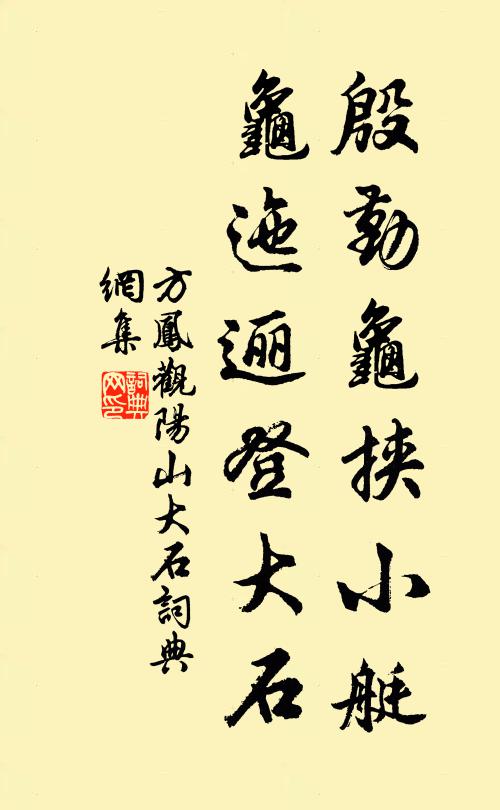 殷勤龜挾小艇
龜迤逦登大石
方鳳觀陽山大石詞典
網集
詞典網印